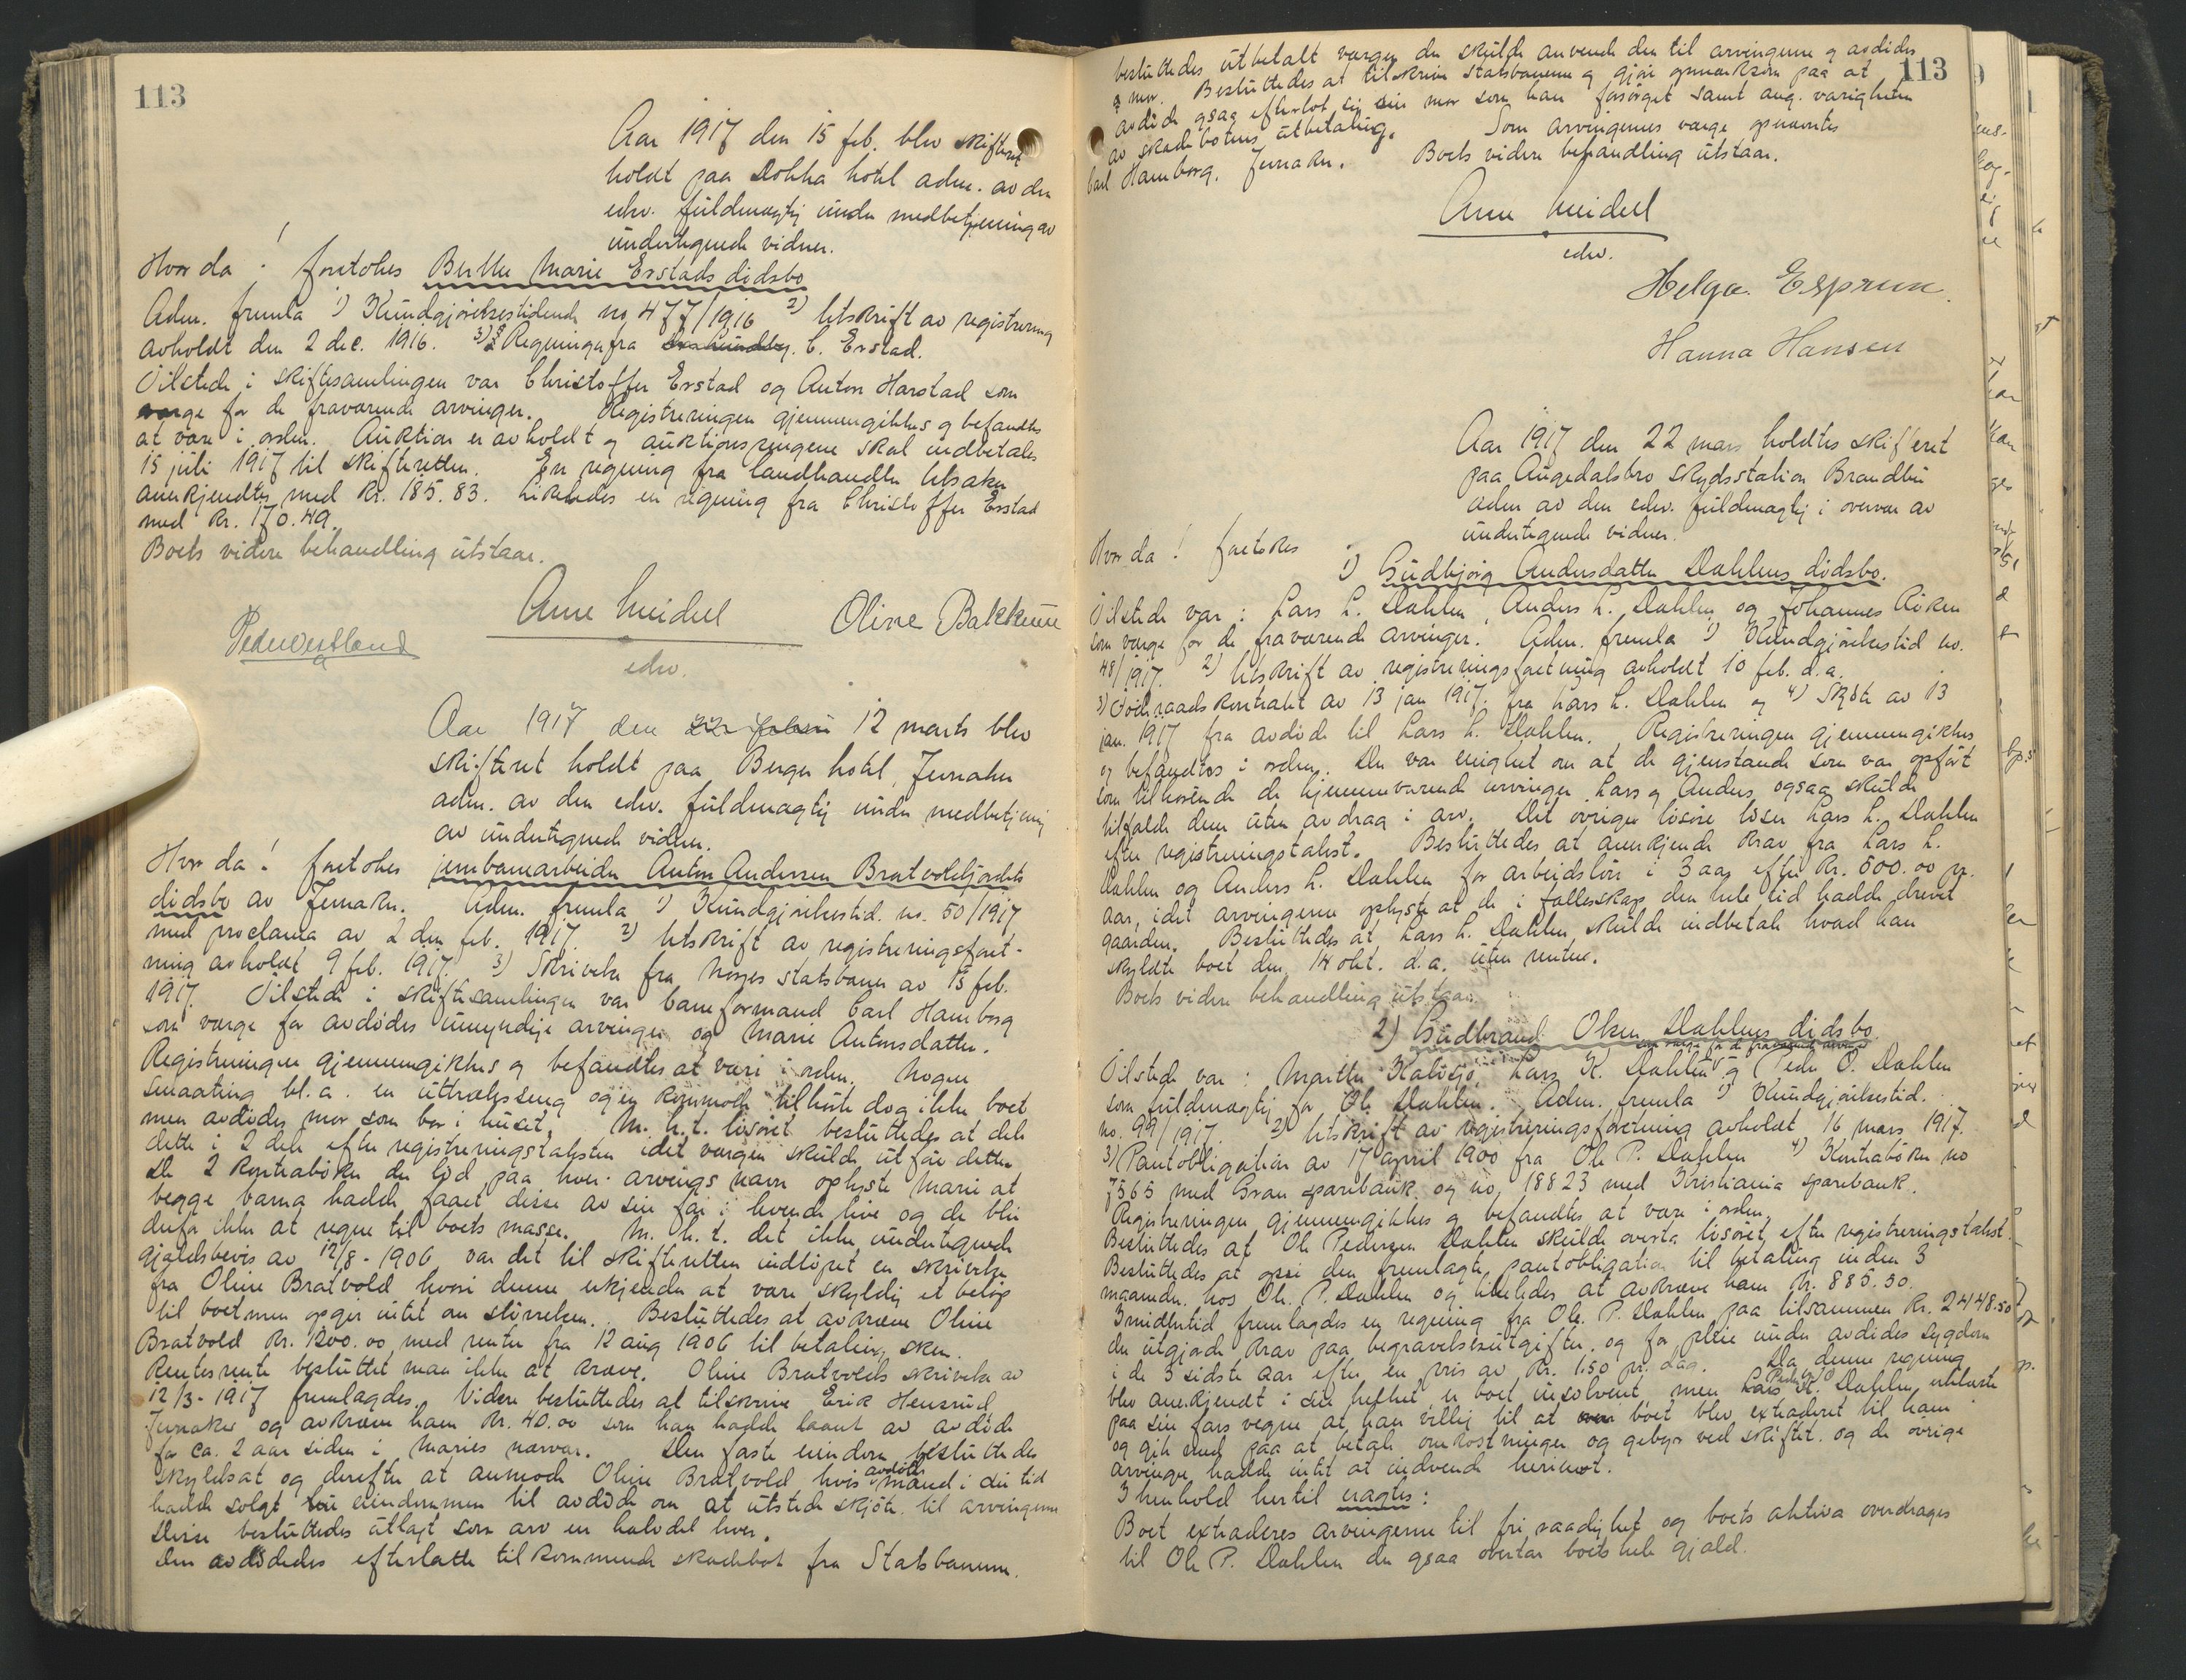 113
Aar 1917 den 15 feb. blev skifteret
holdt paa Dokka hotel adm. av den
edsv. fuldmægtig under medbetjening av
undertegnede vidner.
Hvor da! foretokes Berthe Marie Erstads dødsbo
Adm. fremla 1) Kundgjørelsestidende no 477/1916 2) Utskrift av registrering
avholdt den 2 dec. 1916. 3) Regninger fra C. Erstad.
Tilstede i skiftesamlingen var Christoffer Erstad og Anton Harstad som
værge for de fraværende arvinger. Registreringen gjennemgikkes og befandtes
at være i orden. Auktion er avholdt og auktionspengene skal indbetales
15 juli 1917 til skifteretten. En regning fra landhandler Utsaker
anerkjendtes med Kr. 185.83. Likeledes en regning fra Christoffer Erstad
med Kr. 170.49.
Boets videre behandling utstaar.
Arne Meidell
edsv.
Oline Bakkene
Aar 1917 den 12 marts blev
skifteret holdt paa Berger hotel, Jevnaker
adm. av den edsv. fuldmægtig under medbetjening
av undertegnede vidner.
Hvor da! foretokes jernbanearbeider Anton Andersen Bratvoldsjordets
dødsbo av Jevnaker. Adm. fremla 1) Kundgjørelsestid. no. 50/1917
med proclama av 2 den feb. 1917. 2) Utskrift av registreringsforret-
ning avholdt 9 feb. 1917. 3) Skrivelse fra Norges statsbaner av 15 feb.
1917. Tilstede i skiftesamlingen var baneformand Carl Hamborg
som værge for avdødes umyndige arvinger og Marie Antonsdatter.
Registreringen gjennemgikkes og befandtes at være i orden. Nogen
smaating bl.a. en uttræksseng og en kommode tilhørte dog ikke boet
men avdødes mor som bor i huset. M. h. t. løsøret besluttedes at dele
dette i 2 dele efter registreringstaksten idet værgen skulde utføre dette
De 2 kontrabøker der lød paa hver arvings navn oplyste Marie at
begge barna hadde faaet disse av sin far i levende live og de blir
derfor ikke at regne til boets masse. M. h. t. det ikke undertegnede
gjældsbevis av 12/8-1906 var det til skifteretten indløpet en skrivelse
fra Oline Bratvold hvori denne erkjender at være skyldig et beløp
til boet men opgir intet om størrelsen. Besluttedes at avkræve Oline
Bratvold Kr. 1200.00 med renter fra 12 aug 1906 til betaling sker.
Rentesrente besluttet man ikke at kræve. Oline Bratvolds skrivelse av
12/3-1917 fremlagdes. Videre besluttedes at tilskrive Erik Hensrud
Jevnaker og avkræve ham Kr. 40.00 som han hadde laant av avdøde
for ca. 2 aar siden i Maries nærvær. Den faste eiendom besluttedes
skyldsat og derefter at anmode Oline Bratvold hvis avdøde mand i sin tid
hadde solgt eiendommen til avdøde om at utstede skjøte til arvingerne
Disse besluttedes utlagt som arv en halvdel hver.
Den avdødes efterlatte tilkommende skadebot fra Statsbanerne.
113
besluttedes utbetalt værgen der skulde anvende den til arvingerne og avdødes
mor. Besluttedes at tilskrive statsbanerne og gjøre opmerksom paa at
avdøde ogsaa efterlot sig sin mor som han forsørget samt ang. varigheten
av skadebotens utbetaling. Som arvingernes værge opnævntes
Carl Hamborg, Jevnaker. Boets videre behandling utstaar.
Arne Meidell
edsv.
Helga Esprum.
Hanna Hansen
Aar 1917 den 22 mars holdtes skifteret
paa Augedalsbro Skydsstation Brandbu
adm av den edsv. fuldmægtig i overvær av
undertegnede vidner.
Hvor da! foretokes
1) Gudbjørg Andersdatter Dahlens dødsbo.
Tilstede var: Lars L. Dahlen, Anders L. Dahlen og Johannes
som værge for de fraværende arvinger. Adm. fremla 1) Kundgjørelsestid no.
48/1917. 2) Utskrift av registreringsforretning avholdt 10 feb. d.a.
3) Føderaadskontrakt av 13 jan 1917. fra Lars L. Dahlen og 4) Skjøte av 13
jan. 1917 fra avdøde til Lars L. Dahlen. Registreringen gjennemgikkes
og befandtes i orden. Der var enighet om at de gjenstande som var opført
som tilhørende de hjemmeværende arvinger Lars og Anders ogsaa skulde
tilfalde dem uten avdrag i arv. Det øvrige løsøre løser Lars L. Dahlen
efter registreringstakst. Besluttedes at anerkjende krav fra Lars L.
Dahlen og Anders L. Dahlen for arbeidsløn i 3 aar efter Kr. 500.00 pr.
aar, idet arvingerne oplyste at de i fællesskap den hele tid hadde drevet
gaarden. Besluttedes at Lars L. Dahlen skulde indbetale hvad han
skyldte boet den 14 okt. d.a. uten renter.
Boets videre behandling utstaar.
2) Gudbrand Olsen Dahlens dødsbo.
som værge for de fraværende arvinger
Tilstede var: Marthe Kalvsjø, Lars K. Dahlen og Peder O. Dahlen
som fuldmægtig for Ole Dahlen. Adm. fremla 1) Kundgjørelsestid.
no. 99/1917. 2) Utskrift av registreringsforretning avholdt 16 mars 1917.
3) Pantobligation av 17 april 1900 fra Ole P. Dahlen 4) Kontrabøker no
7565 med Gran sparebank og no. 18823 med Kristiania sparebank.
Registreringen gjennemgikkes og befandtes at være i orden.
Besluttedes at Ole Pedersen Dahlen skulde overta løsøret efter registreringstakst.
Besluttedes at opsi den fremlagte pantobligation til betaling inden 3
maaneder hos Ole P. Dahlen og likeledes at avkræve ham Kr. 885.50.
Imidlertid fremlagdes en regning fra Ole P. Dahlen paa tilsammen Kr. 2448.50
der utgjorde krav paa begravelsesutgifter, og for pleie under avdødes sygdom
i de 3 sidste aar efter en pris av Kr. 1.50 pr. dag. Da denne regning
blev anerkjendt i sin helhet er boet insolvent, men Peder O. Dahlen erklærte
paa sin fars vegne at han villig til at boet blev extraderet til ham
og gik med paa at betale omkostninger og gebyr ved skiftet og de øvrige
arvinger hadde intet at indvende herimot.
I henhold hertil eragtes:
Boet extraderes arvingerne til fri raadighet og boets aktiva overdrages
til Ole P. Dahlen der ogsaa overtar boets hele gjæld.